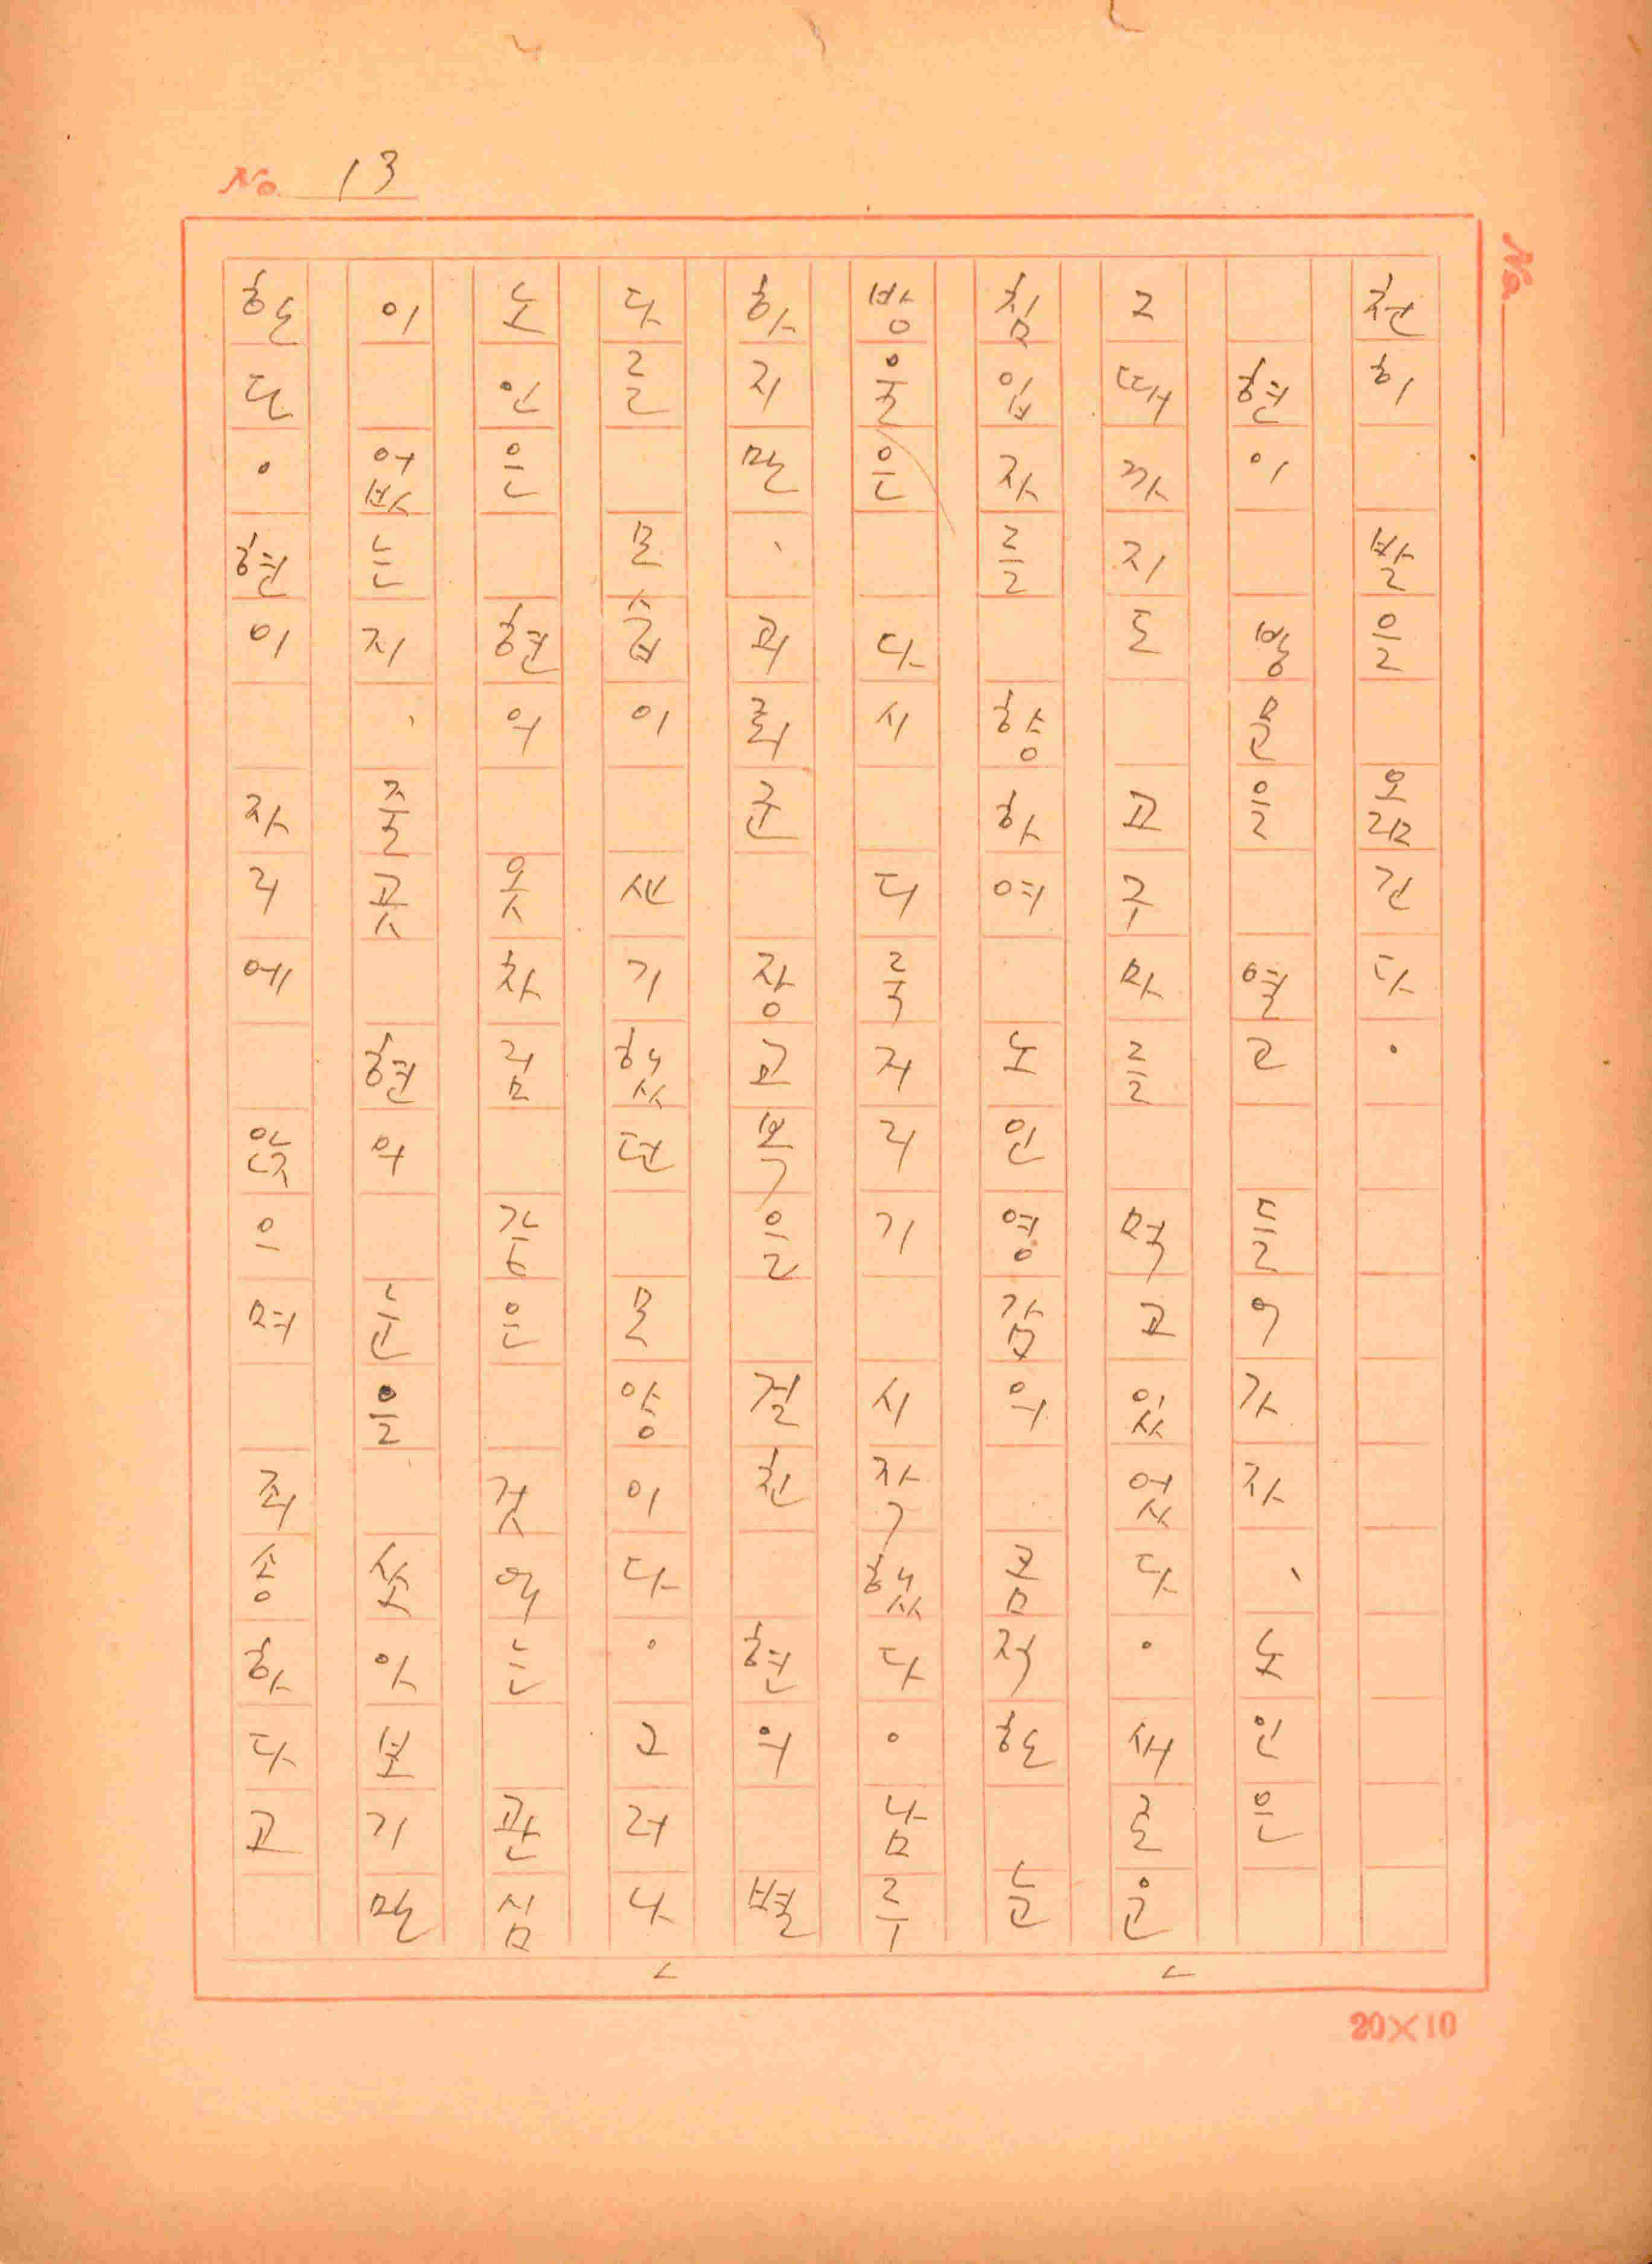 No. 13
No.
천히 발을 옮긴다.
현이 방문을 열고 들어가자, 노인은
그때까지도 고구마를 먹고있었다. 새로온
침입자를 향하여 노인영감의 끔직한 눈
방울은 다시 디룩거리기 시작했다. 남루
하지만, 괴뢰군 장교복을 걸친 현의 별
다른 모습이 신기했던 모양이다. 그러나
노인은 현의 옷차림 같은 것에는 관심
이 없는지, 줄곳 현의 눈을 쏘아보기만
한다. 현이 자리에 앉으며 죄송하다고
20×10